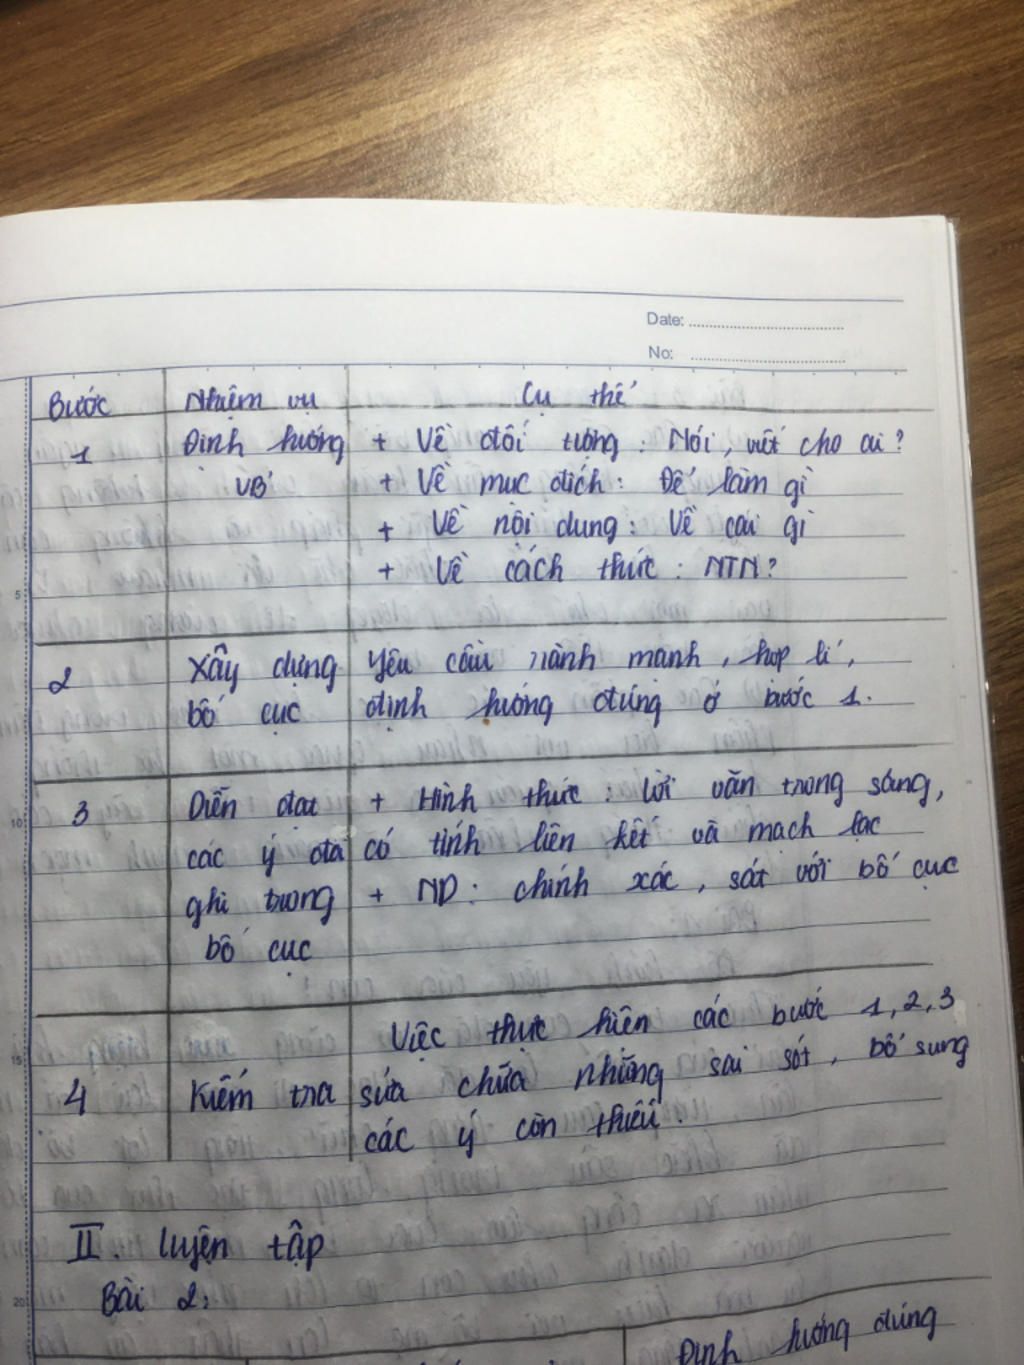 Date:
No:
Bước Nhiệm vụ Cụ thể
1 Định hướng + Về đối tượng : Nói, viết cho ai?
VB + Về mục đích : Để làm gì
+ Về nội dung : Về cái gì
+ Về cách thức : NTN?
2 Xây dựng Yêu cầu rành mạnh, hợp lí,
bố cục định hướng đúng ở bước 1.
3 Diễn đạt + Hình thức : lời văn trong sáng,
các ý đã có tính liên kết và mạch lạc
ghi trong + ND : chính xác, sát với bố cục
bố cục
Việc thực hiện các bước 1,2,3
4 Kiểm tra sửa chữa những sai sót, bổ sung
các ý còn thiếu.
II. Luyện tập
Bài 2:
Định hướng đúng
5
10
15
20